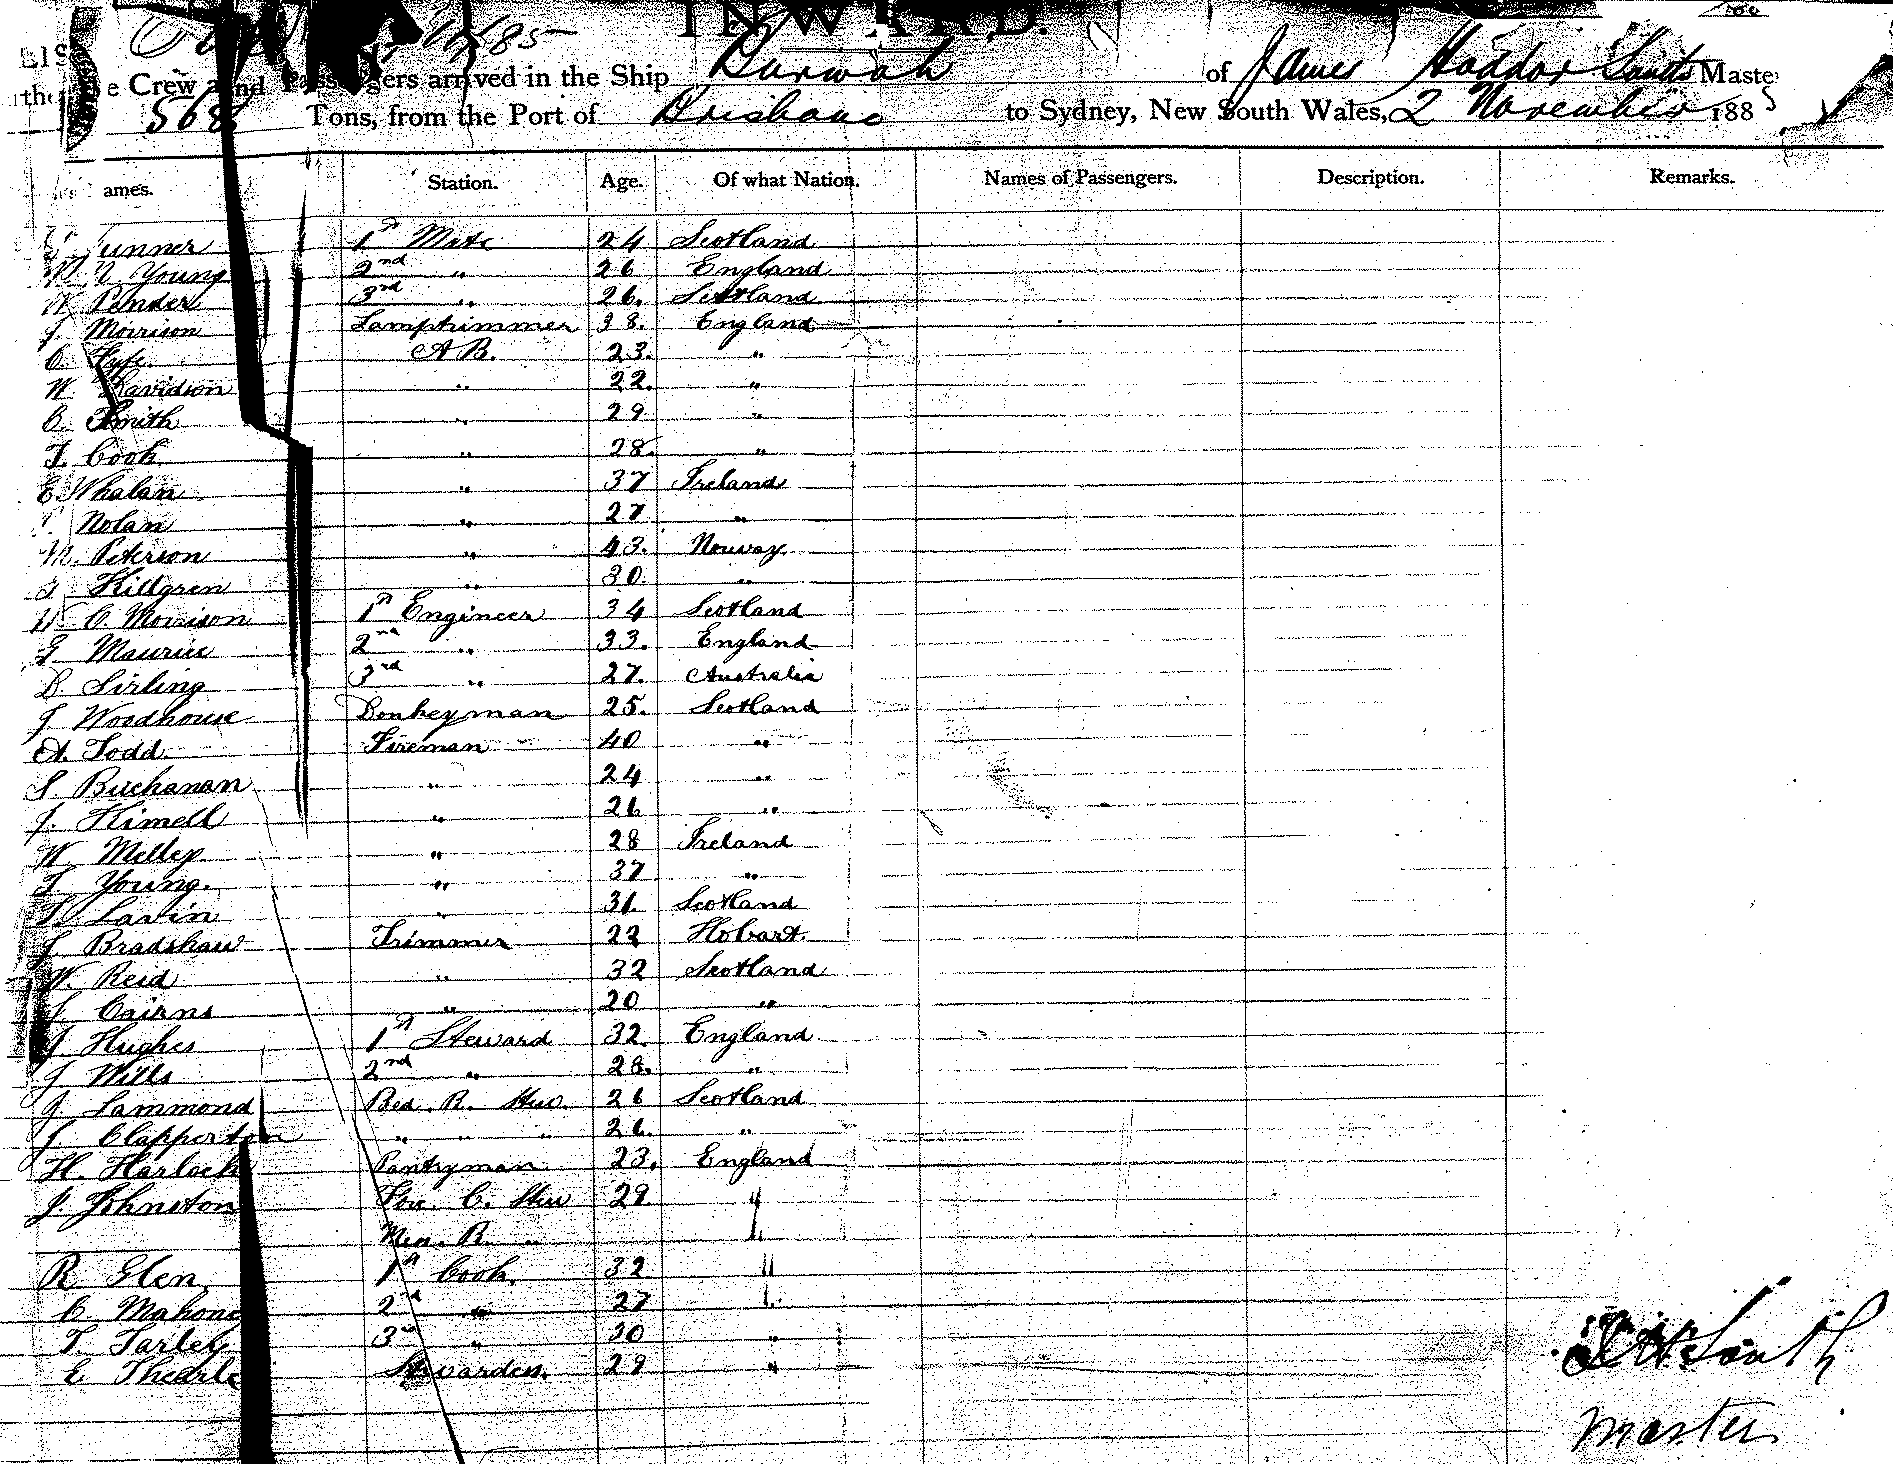 INWARD.
e Crew and Passengers arrived in the Ship Burwah of James Smith Maste
568 Tons, from the Port of Brisbane to Sydney, New South Wales, 2 November 1885
ames. Station. Age. Of what Nation. Names of Passengers. Description. Remarks.
unner 1st Mate 24 Scotland
Young 2nd " 26 England
W Pender 3rd " 26. Scotland
J. Morrison Lamptrimmer 38. England
C. Fyfe A B. 23. "
W. Davidson " 22. "
C. Smith " 29 "
T. Cook " 28. "
E. Whalan " 37 Ireland
Nolan " 27 "
M. Peterson " 43. Norway
Killgren " 30 "
W C. Morrison 1st Engineer 34 Scotland
G. Maurice 2nd " 33. England
D. Sirling 3rd " 27. Australia
J Woodhouse Donkeyman 25. Scotland
A. Todd Fireman 40 "
S. Buchanan " 24 "
J. Kimell " 26 "
W Melley " 28 Ireland
T Young. " 37 "
Lavin " 31. Scotland
J Bradshaw Trimmer 22 Hobart.
W. Reid " 32 Scotland
J Cairns " 20 "
J Hughes 1st Steward 32. England
J Wills 2nd " 28. "
J Lammond Bed. R. Stw. 26 Scotland
J Clapperton " " " 26. "
H. Harlock Pantryman 23. England
J. Johnston Fore. C. Stw 29 "
Mess. R. " "
R Glen 1st Cook. 32 "
C. Mahone 2nd " 27 "
T Tarley 3rd " 30 "
E Thearle Stewardess. 29 "
Smith
Master